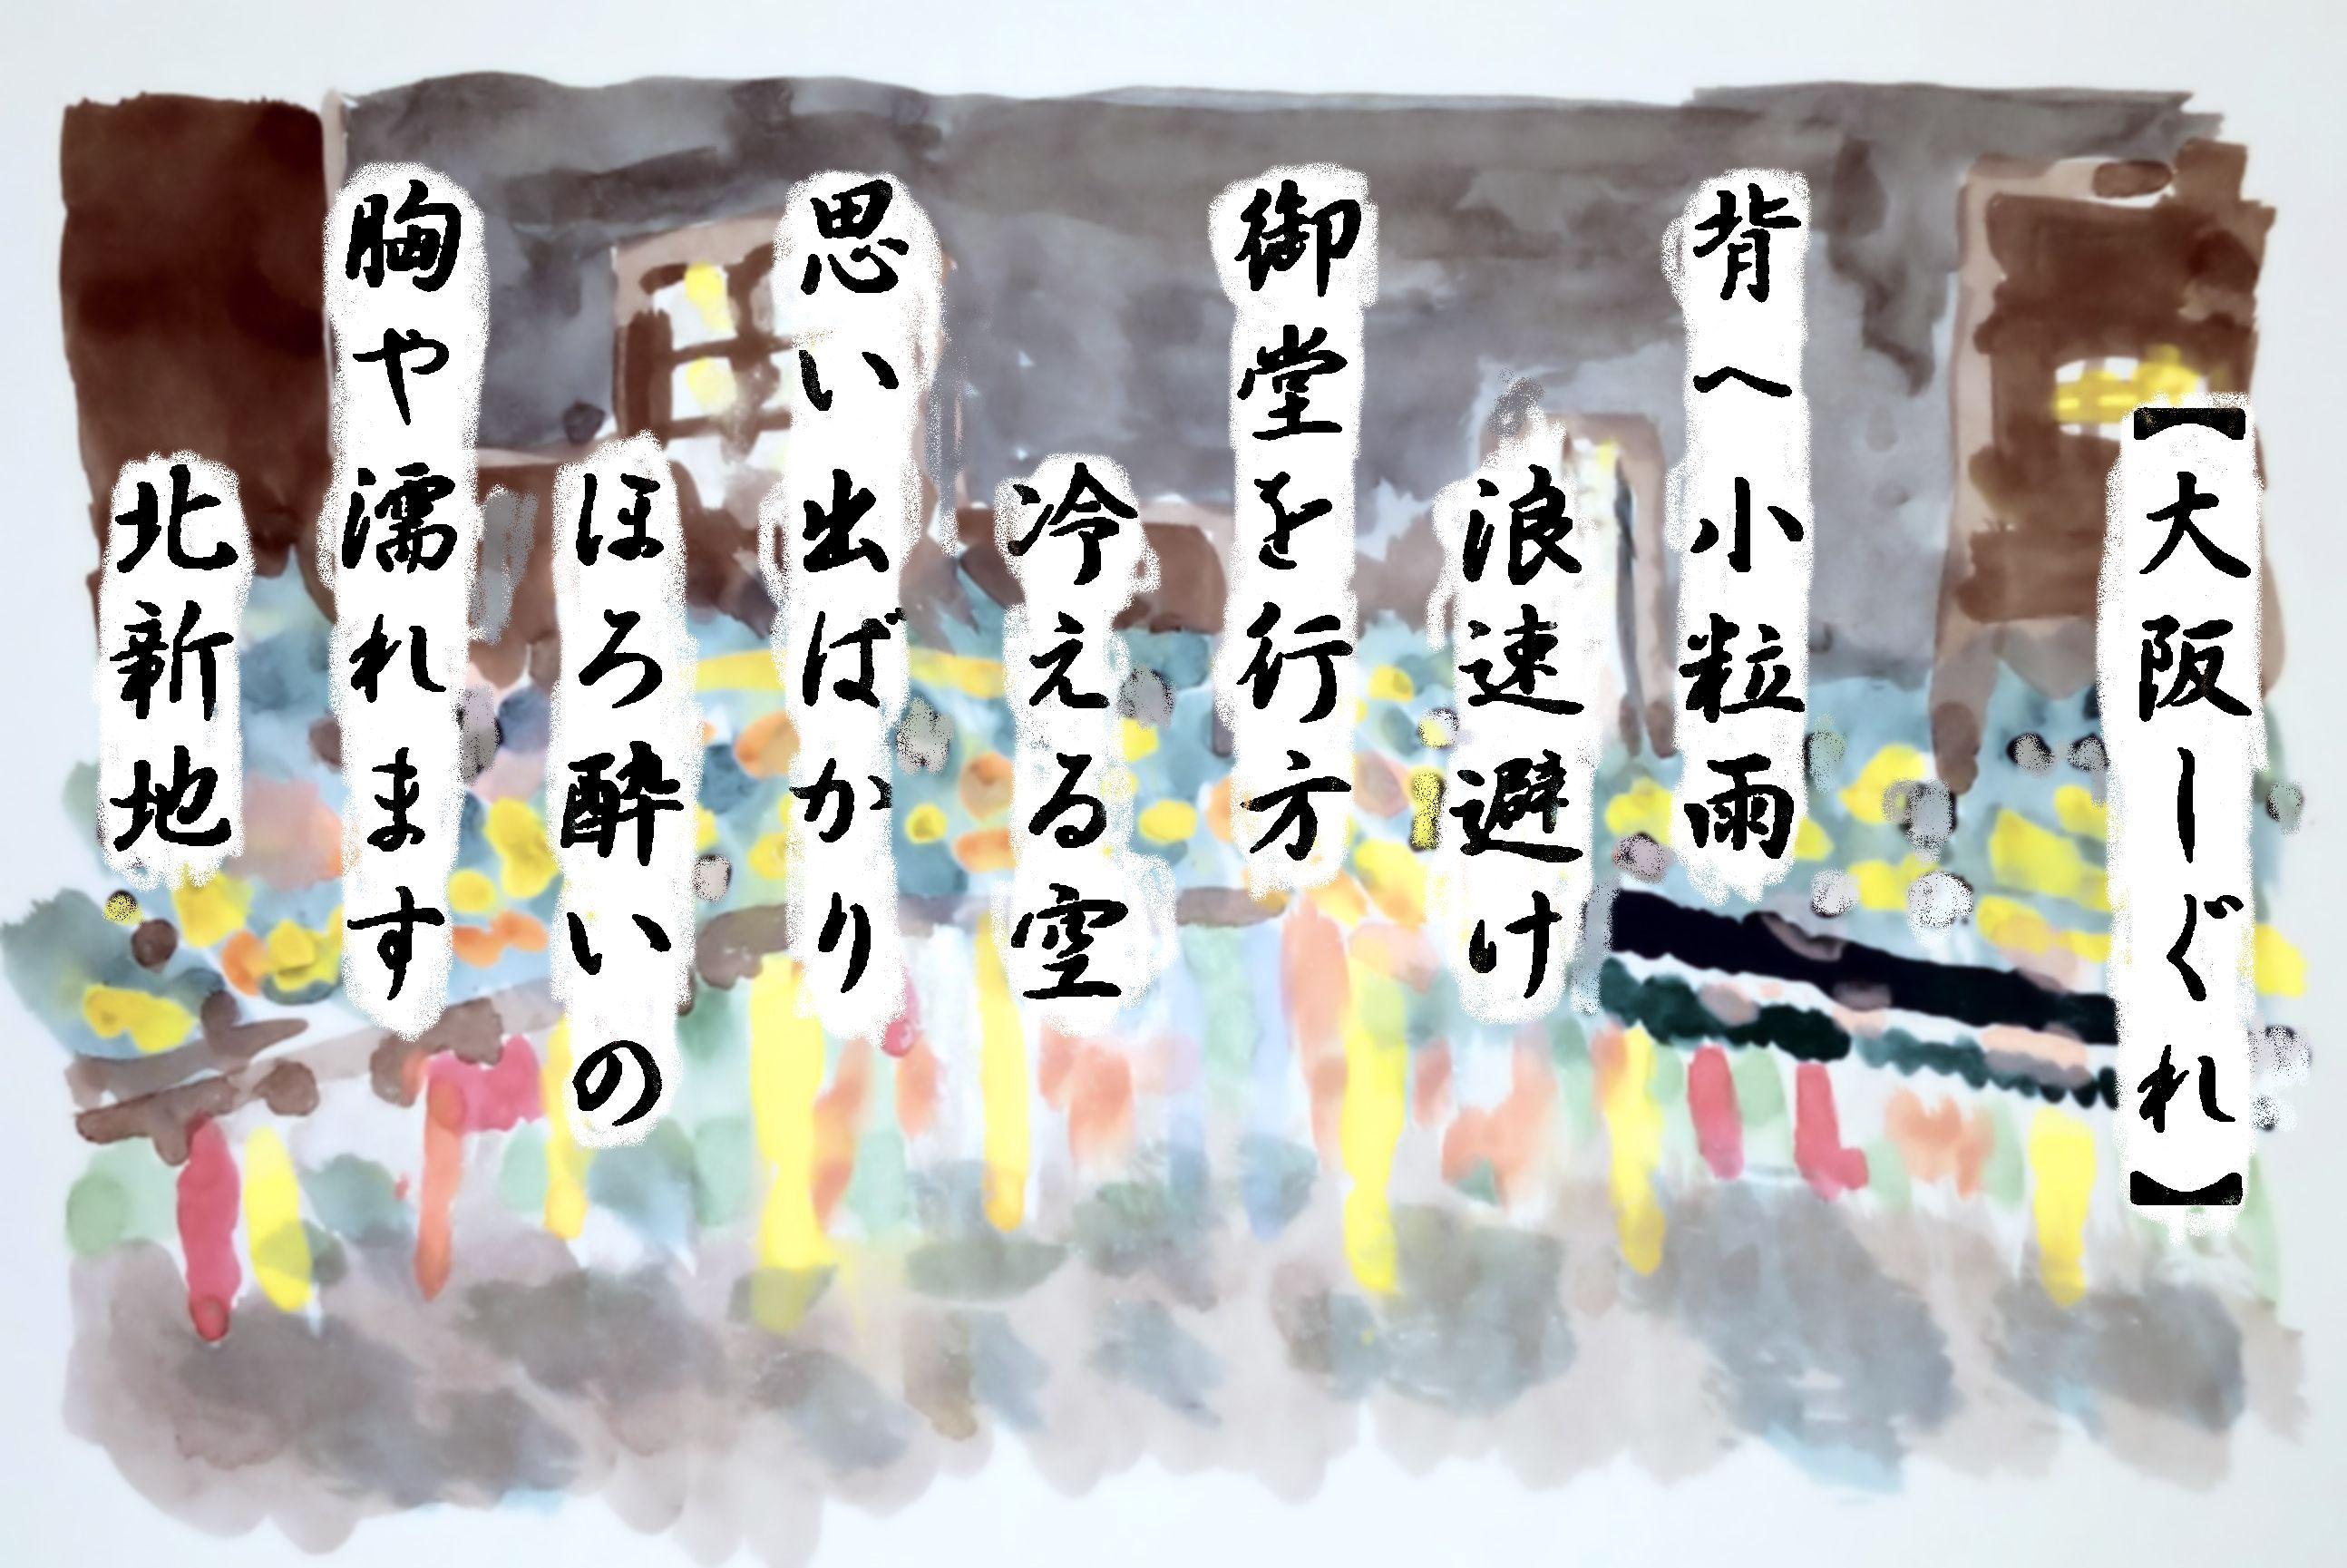 【大阪しぐれ】
背へ小粒雨
浪速避け
御堂を行方
冷える空
思い出ばかり
ほろ酔いの
胸や濡れます
北新地